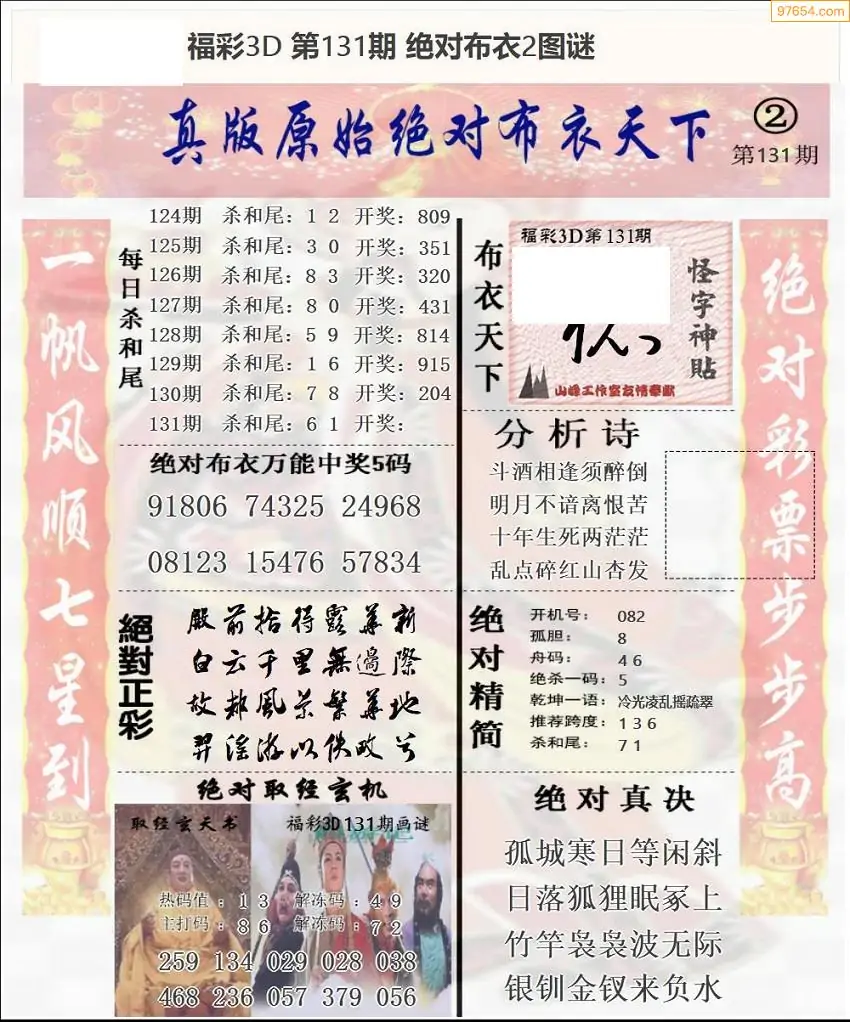 97654.com
福彩3D 第131期 绝对布衣2图谜
真版原始绝对布衣天下
②
第131期
一帆风顺七星到
每日杀和尾
124期 杀和尾：1 2 开奖：809
125期 杀和尾：3 0 开奖：351
126期 杀和尾：8 3 开奖：320
127期 杀和尾：8 0 开奖：431
128期 杀和尾：5 9 开奖：814
129期 杀和尾：1 6 开奖：915
130期 杀和尾：7 8 开奖：204
131期 杀和尾：6 1 开奖：
绝对布衣万能中奖5码
91806 74325 24968
08123 15476 57834
絕對正彩
殿前拾得露華新
白云千里無邊際
故鄉風景繁華地
羿淫游以佚畋兮
绝对取经玄机
取经玄天书
福彩3D131期画谜
热码值：1 3 解冻码：4 9
主打码：8 6 解冻码：7 2
259 134 029 028 038
468 236 057 379 056
布衣天下
福彩3D第131期
怪字神貼
山峰工作室友情奉献
分析诗
斗酒相逢须醉倒
明月不谙离恨苦
十年生死两茫茫
乱点碎红山杏发
绝对精简
开机号：082
孤胆：8
舟码：4 6
绝杀一码：5
乾坤一语：冷光凌乱摇疏翠
推荐跨度：1 3 6
杀和尾：7 1
绝对真决
孤城寒日等闲斜
日落狐狸眠冢上
竹竿袅袅波无际
银钏金钗来负水
绝对彩票步步高